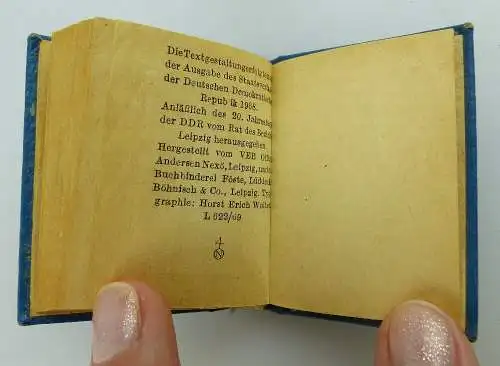 Die Textgestaltung erfolgte
der Ausgabe des Staatsver
der Deutschen Demokratisch
Republik 1968.
Anläßlich des 20. Jahrestag
der DDR vom Rat des Bezir
Leipzig herausgegeben.
Hergestellt vom VEB Offiz
Andersen Nexö, Leipzig, und
Buchbinderei Föste, Lüddec
Böhnisch & Co., Leipzig. Typ
graphie: Horst Erich Wolter
L 622/69
N